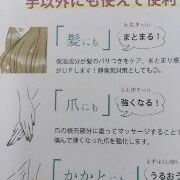 手以外にも使えて便利
「髪にも」
まとまる!
保湿成分が髪のパサつきをケア。まとまり感
がUPします!静電気対策としても◎。
「爪にも」
強くなる!
爪の根元部分に塗ってマッサージすることで
傷んで薄くなった爪を強化します。
「かかとに
うるおう